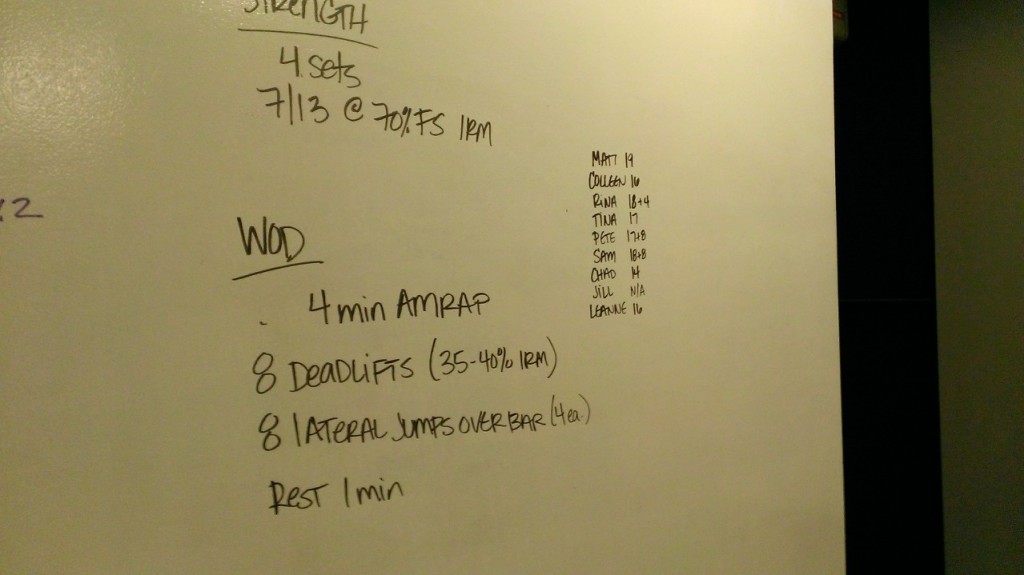 STRENGTH
4 sets
7/13 @ 70% FS 1RM
MATT 19
COLLEEN 16
RINA 18+4
TINA 17
PETE 17+8
SAM 18+8
CHAD 14
JILL N/A
LEANNE 16
:2
WOD
4 min AMRAP
8 DEADLIFTS (35-40% 1RM)
8 LATERAL JUMPS OVER BAR (4 ea.)
REST 1 min